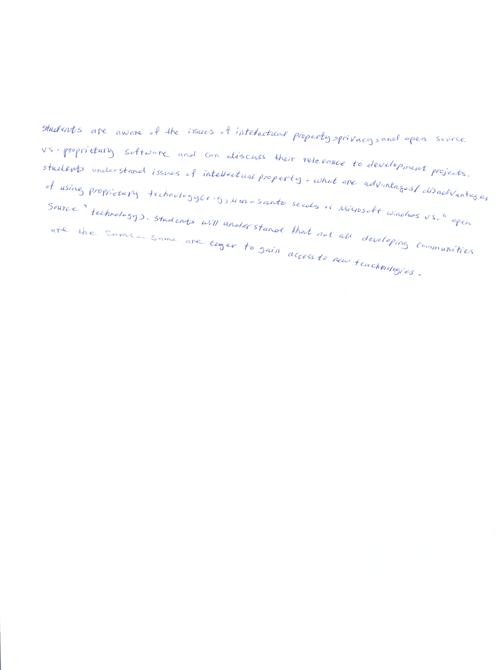 students are aware of the issues of intelectual property, privacy, and open source
vs. proprietary software and can discuss their relevance to development projects.
students understand issues of intellectual property - what are advantages/disadvantages
of using proprietary technology(e.g., Mon-Santo seeds or Microsoft windows vs. "open
Source" technology). Students will understand that not all developing communities
are the same - some are eager to gain access to new teachnologies.